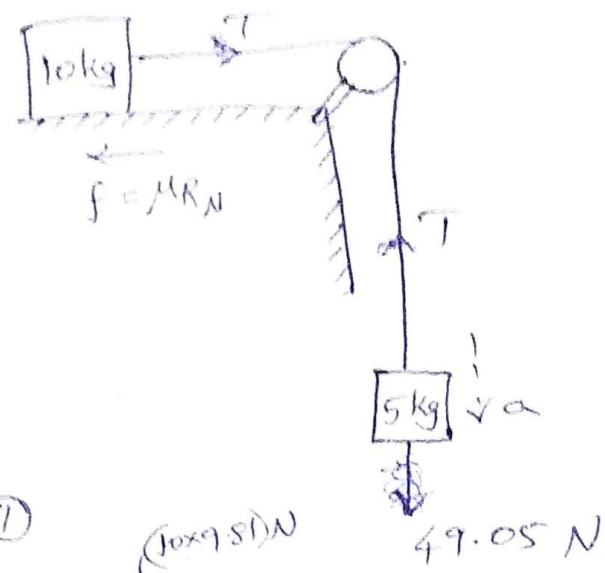 T
10kg
f = μR_N
T
5kg
a
①
(10×9.81)N
49.05 N